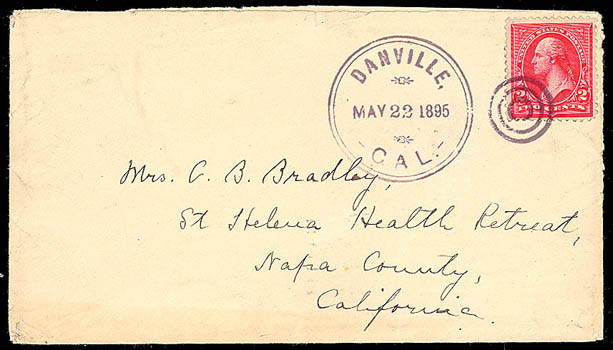 DANVILLE,
MAY 22 1895
CAL.
UNITED STATES POSTAGE
2 2
TWO CENTS
Mrs. C. B. Bradley,
St Helena Health Retreat,
Napa County,
California.